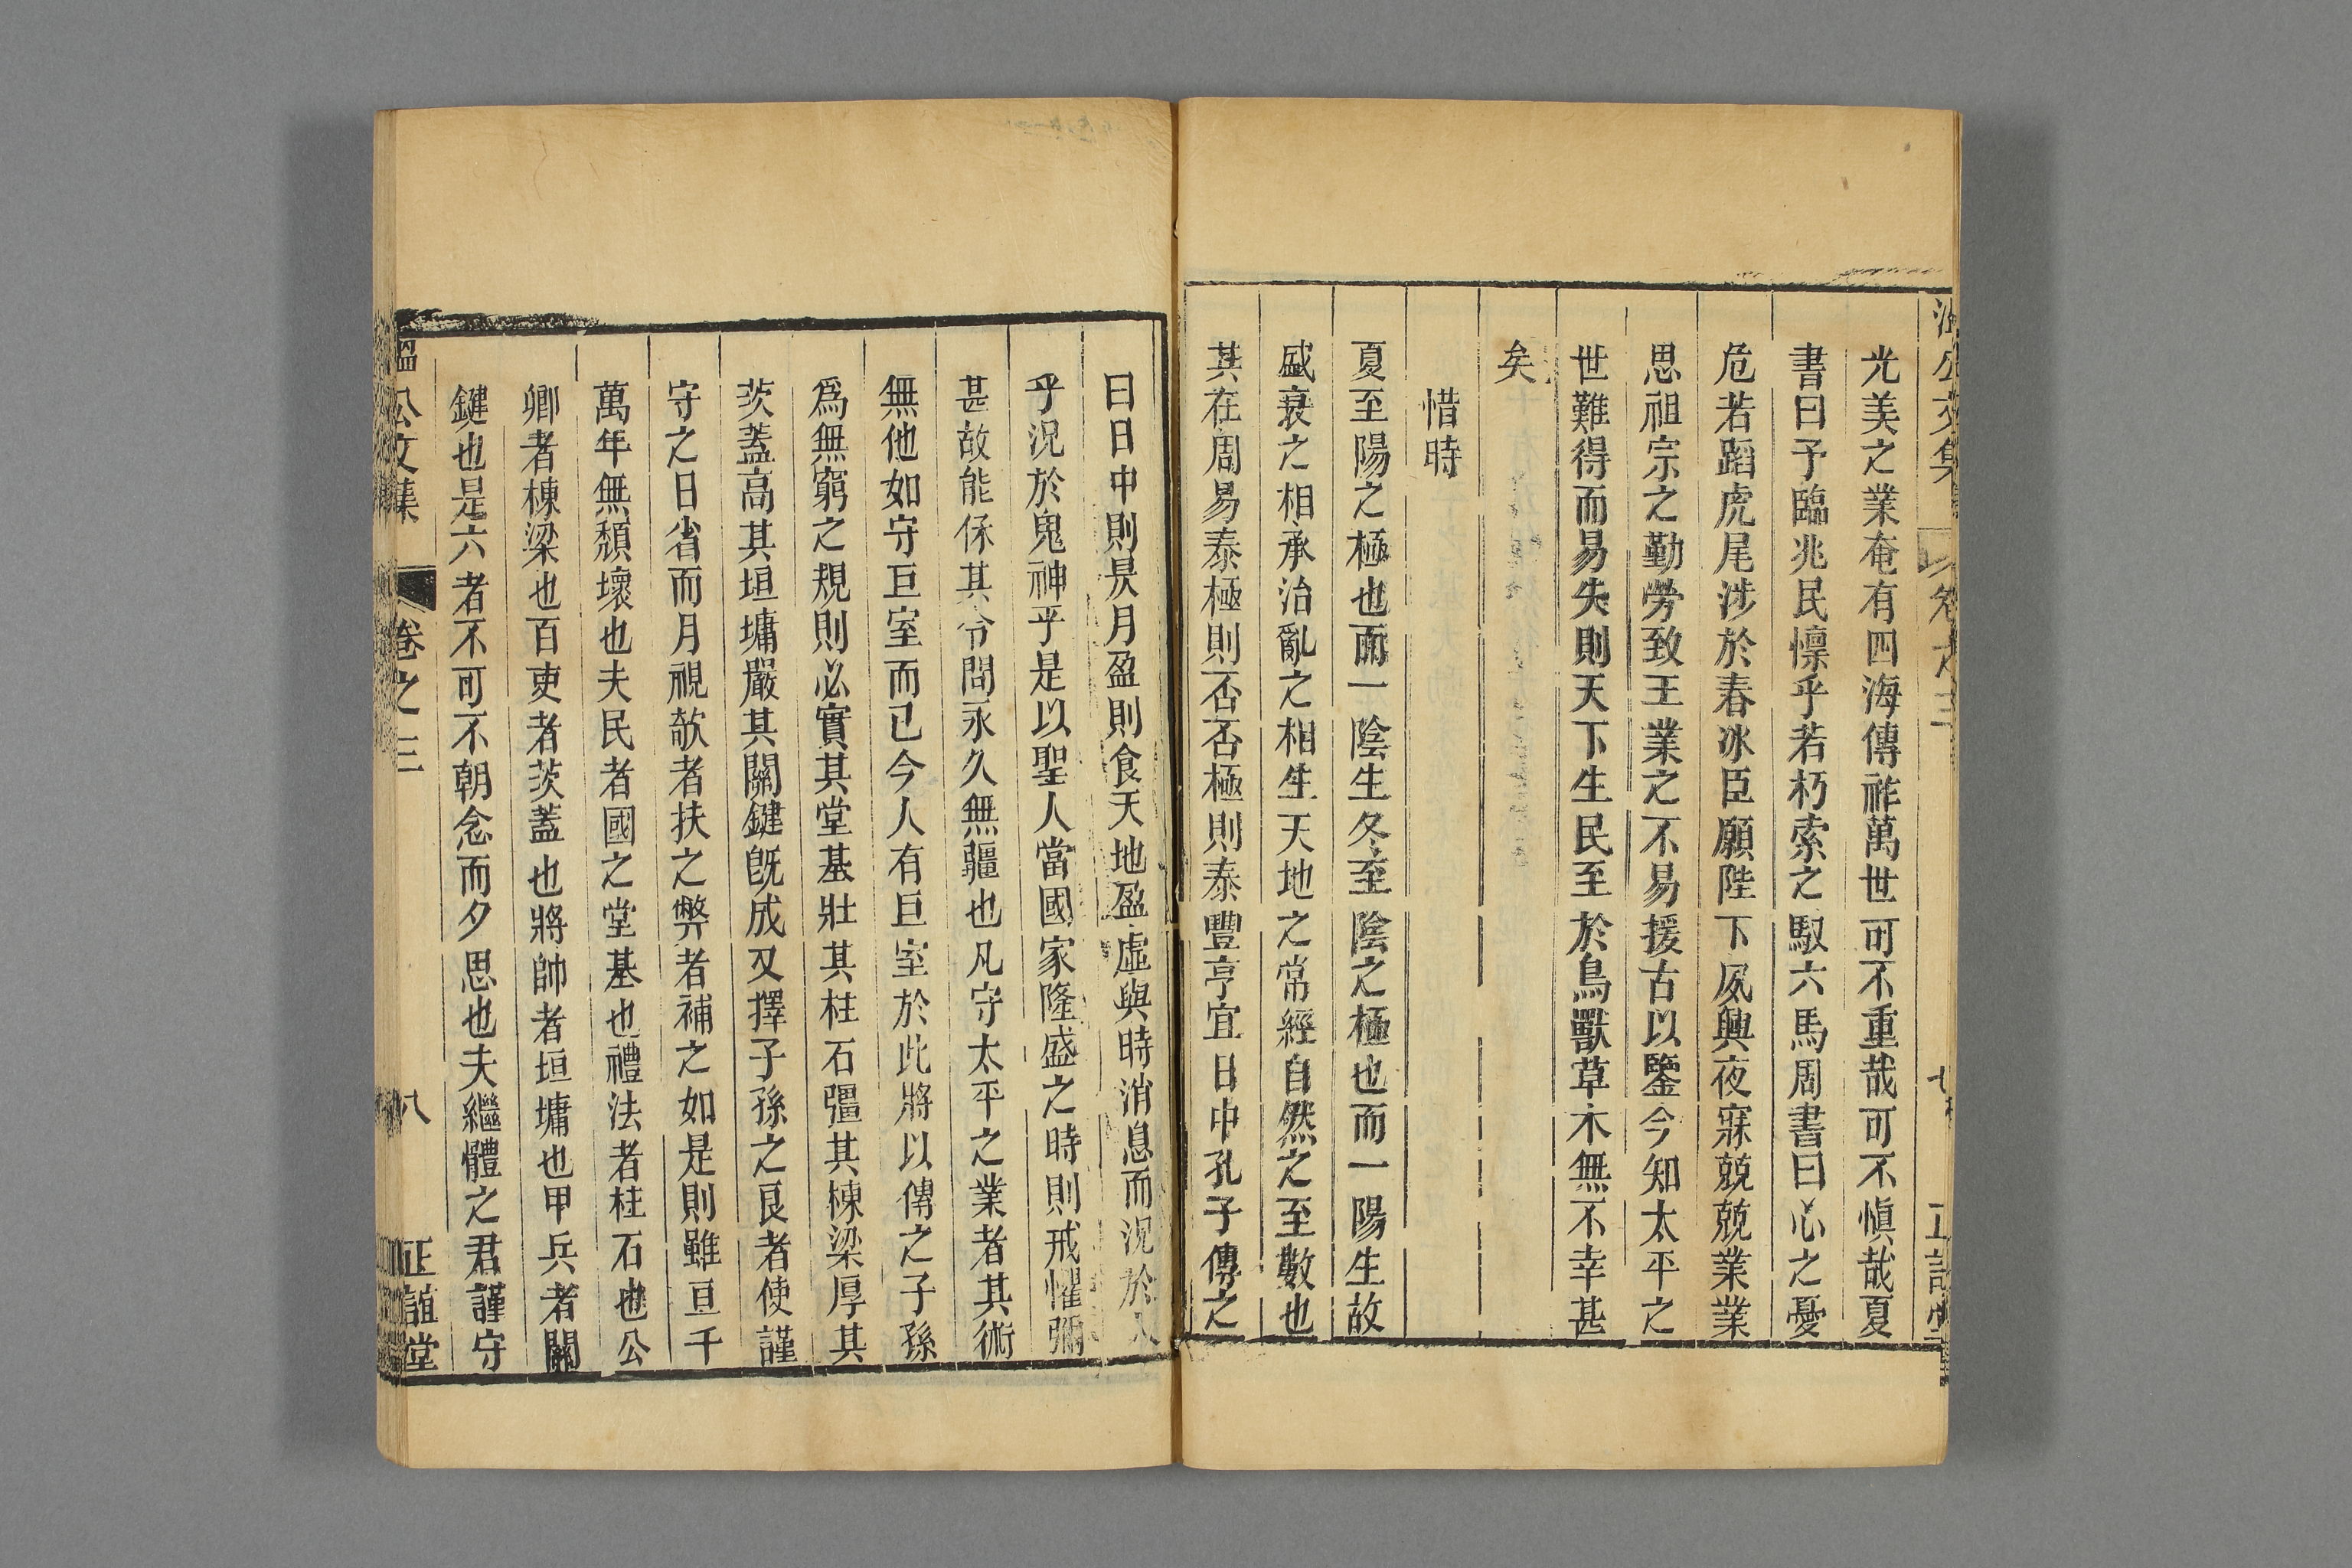 光美之業奄有四海傳祚萬世可不重哉可不愼哉夏
書曰予臨兆民懍乎若朽索之馭六馬周書曰心之憂
危若蹈虎尾涉於春冰臣願陛下夙興夜寐兢兢業業
思祖宗之勤勞致王業之不易援古以鑒今知太平之
世難得而易失則天下生民至於鳥獸草木無不幸甚
矣
惜時
夏至陽之極也而一陰生冬至陰之極也而一陽生故
盛衰之相承治亂之相生天地之常經自然之至數也
其在周易泰極則否否極則泰豐亨宜日中孔子傳之
曰日中則昃月盈則食天地盈虛與時消息而況於人
乎況於鬼神乎是以聖人當國家隆盛之時則戒懼彌
甚故能保其令問永久無疆也凡守太平之業者其術
無他如守巨室而已今人有巨室於此將以傳之子孫
爲無窮之規則必實其堂基壯其柱石彊其棟梁厚其
茨蓋高其垣墉嚴其關鍵旣成又擇子孫之良者使謹
守之日省而月視欹者扶之弊者補之如是則雖亘千
萬年無頹壞也夫民者國之堂基也禮法者柱石也公
卿者棟梁也百吏者茨蓋也將帥者垣墉也甲兵者關
鍵也是六者不可不朝念而夕思也夫繼體之君謹守
溫公文集 卷之三 八 正誼堂